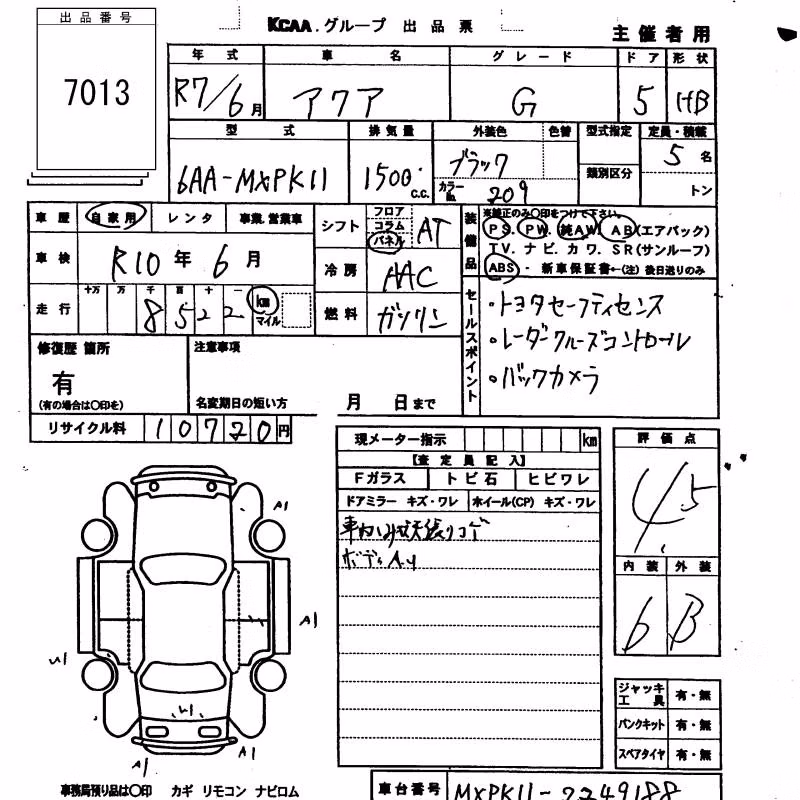 出品番号
7013
KCAA.グループ 出品票
主催者用
年式 車名 グレード ドア 形状
R7/6月 アクア G 5 HB
型式 排気量 外装色 色替 型式指定 定員・積載
6AA-MXPK11 1500 c.c. ブラック 類別区分 5名
カラーNo. 209 トン
車歴 自家用 レンタ 事業.営業車
シフト フロア コラム パネル AT
装備品 ※純正のみ○印をつけて下さい。
PS. PW. 純AW. AB(エアバック)
TV. ナビ. カワ. SR(サンルーフ)
ABS・ 新車保証書←(注)後日送りのみ
車検 R10年6月
冷房 AAC
走行 十万 万 千 百 十 一 km マイル
8 5 2 2
燃料 ガソリン
セールスポイント
・トヨタセーフティセンス
・レーダークルーズコントロール
・バックカメラ
修復歴 箇所
有
(有の場合は○印を)
注意事項
名変期日の短い方 月 日まで
リサイクル料 10720円
現メーター指示 km
【査定員記入】
Fガラス トビ石 ヒビワレ
ドアミラー キズ・ワレ ホイール(CP) キズ・ワレ
評価点
4.5
内装 外装
6 B
A1
A1
U1
U1
A1 A1
ジャッキ工具 有・無
パンクキット 有・無
スペアタイヤ 有・無
事務局預り品は○印 カギ リモコン ナビロム
車台番号 MXPK11-2249188